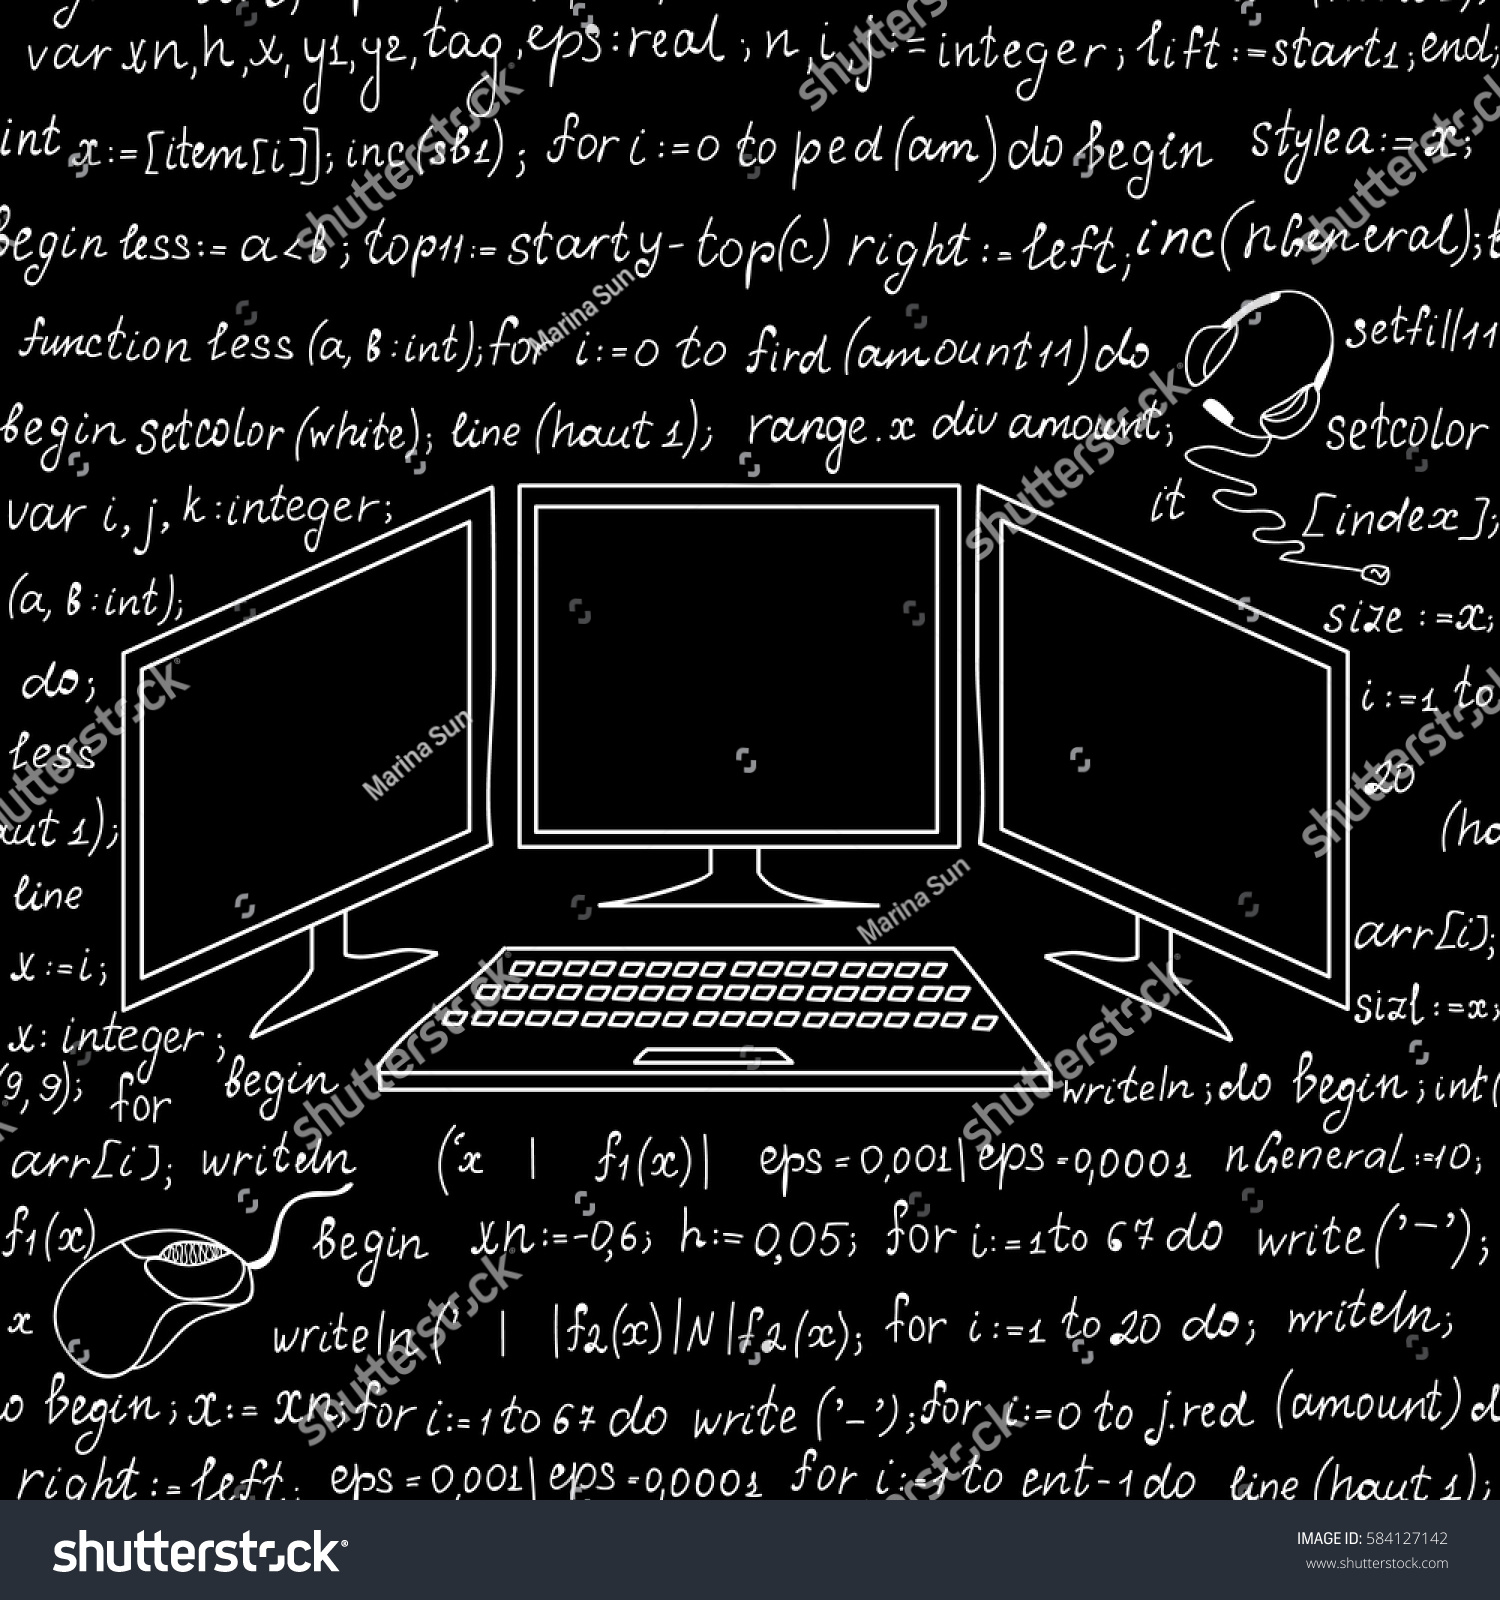 var xn, h, x, y1, y2, tag, eps:real ; n, i, j := integer; lift :=start1; end;
int x:=[item[i]]; inc(sb1); for i :=0 to ped (am) do begin stylea:= x;
begin less:= a<b; top11:= starty-top(c) right := left; inc(nGeneral);
function less (a, b:int); for i:=0 to fird (amount11) do setfill11
begin setcolor (white); line (haut 1); range.x div amount; setcolor
var i, j, k:integer; it [index];
(a, b:int); size :=x;
do; i:=1 to
less 20
aut 1); (ha
line arr[i];
x:=i; sizl:=x;
x: integer ;
(9,9); for begin writeln; do begin; int(
arr[i]; writeln (‘x | f1(x)| eps=0,001|eps=0,0001 nGeneral:=10;
f1(x) begin xn:=-0,6; h:= 0,05; for i:=1to 67 do write('–');
x writeln(' | |f2(x)|N|f2(x); for i:=1 to 20 do; writeln;
o begin; x:= xn; for i:=1to 67 do write ('–'); for i:=0 to j.red (amount) d
right:=left; eps=0,001|eps=0,0001 for i:=1 to ent-1do line (haut 1);
shutterstock
Marina Sun
Marina Sun
Marina Sun
shutterstock
IMAGE ID: 584127142
www.shutterstock.com